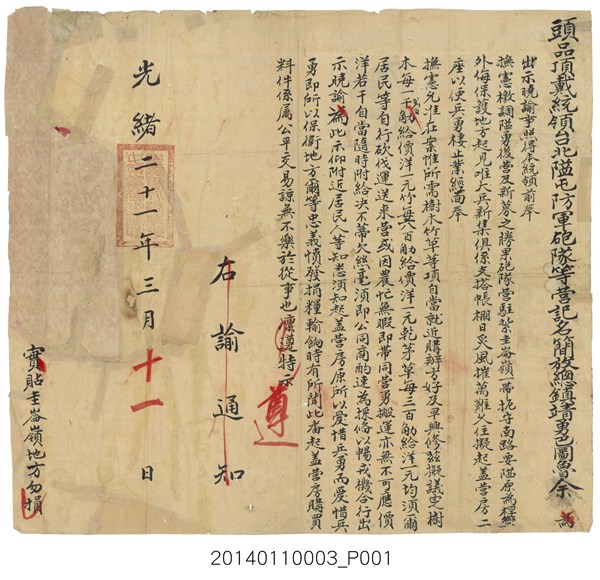 頭品頂戴統領台北隘屯防軍砲隊等營記名簡放總鎮靖勇巴圖魯余 為
出示曉諭事照得本統領前奉
撫憲檄調隘勇後營及新募之勝果砲隊營駐紮圭崙嶺一帶扼守南路要隘原為捍禦
外侮保護地方起見唯大兵新集俱係支搭帳棚日炙風摧萬難久住擬起蓋營房二
座以便兵勇棲止業經面奉
撫憲允准在案惟所需樹木竹草等項自當就近購辦方好及早興修茲擬議定樹
木每一千觔給價洋一元竹每六百觔給價洋一元乾茅草每三百觔給洋一元均須爾
居民等自行砍伐運送來營或因農忙無暇即帶同營勇搬運亦無不可應價
洋若干自當隨時附給決不蒂欠絲毫須即公同商酌速為採備以暢戎機合行出
示曉諭為此示仰附近居民人等知悉須知起蓋營房原所以愛惜兵勇而愛惜兵
勇即所以保衛地方爾等忠義憤發捐糧輸餉時有所聞此番起蓋營房購買
料件係屬公平交易諒無不樂於從事也凜遵特示
遵
右諭通知
光緒二十一年三月十一日
實貼圭崙嶺地方勿損
20140110003_P001